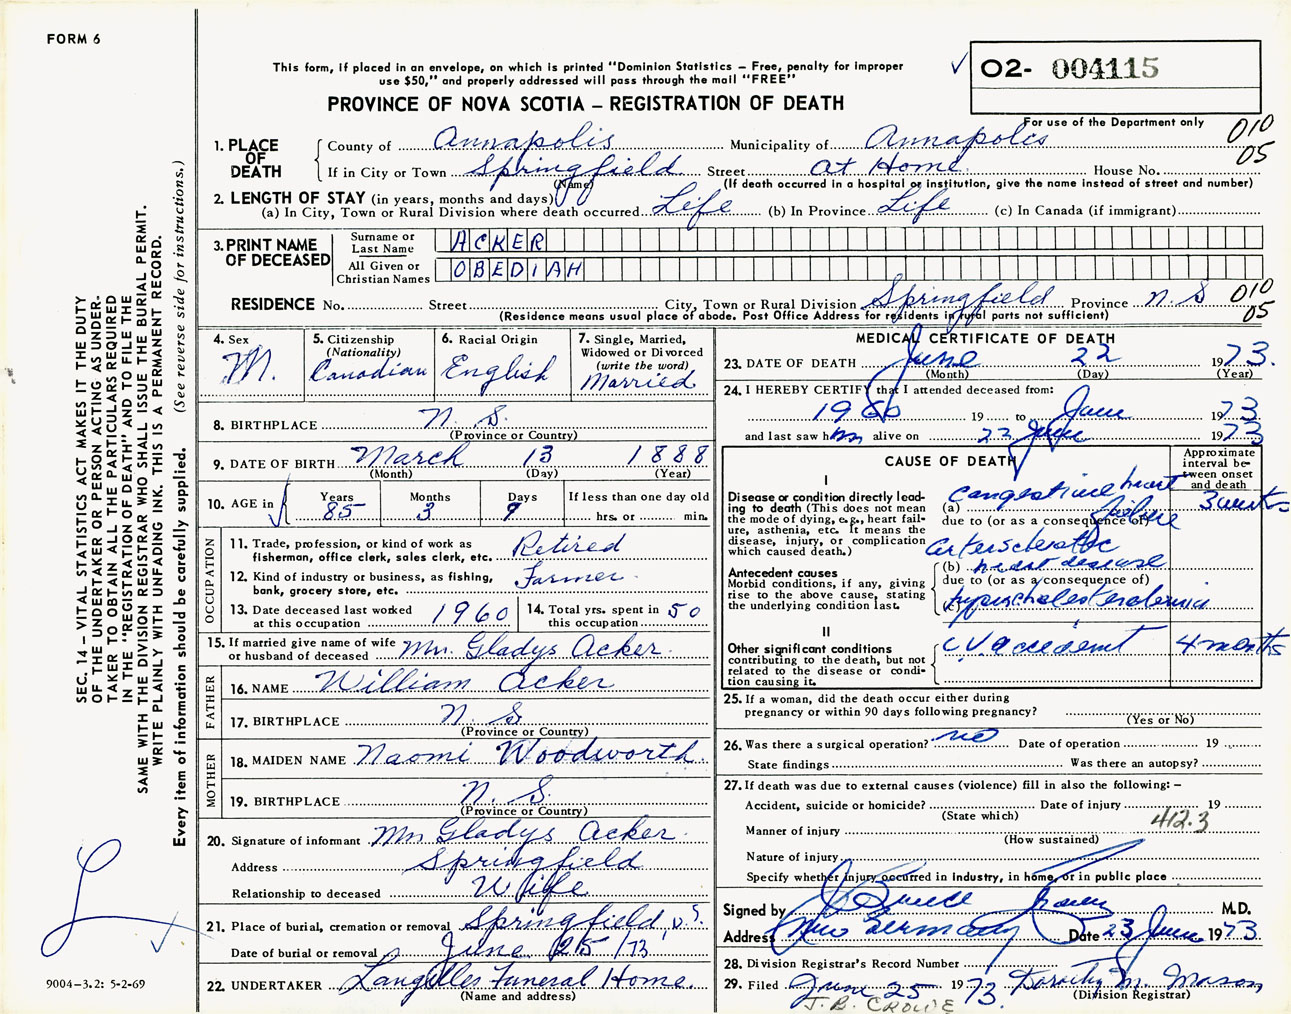 FORM 6
This form, if placed in an envelope, on which is printed "Dominion Statistics – Free, penalty for improper
use $50," and properly addressed will pass through the mail "FREE"
✓ O2- 004115
PROVINCE OF NOVA SCOTIA – REGISTRATION OF DEATH
For use of the Department only
1. PLACE OF DEATH County of Annapolis Municipality of Annapolis 010
If in City or Town Springfield Street at Home House No. 05
(Name) (If death occurred in a hospital or institution, give the name instead of street and number)
2. LENGTH OF STAY (in years, months and days)
(a) In City, Town or Rural Division where death occurred Life (b) In Province Life (c) In Canada (if immigrant)
3. PRINT NAME OF DECEASED
Surname or Last Name ACKER
All Given or Christian Names OBEDIAH
RESIDENCE No. Street City, Town or Rural Division Springfield Province N.S 010
(Residence means usual place of abode. Post Office Address for residents in rural parts not sufficient) 05
4. Sex M.
5. Citizenship (Nationality) Canadian
6. Racial Origin English
7. Single, Married, Widowed or Divorced (write the word) Married
8. BIRTHPLACE N. S.
(Province or Country)
9. DATE OF BIRTH March 13 1888
(Month) (Day) (Year)
10. AGE in Years 85 Months 3 Days 9 If less than one day old hrs. or min.
OCCUPATION
11. Trade, profession, or kind of work as fisherman, office clerk, sales clerk, etc. Retired
12. Kind of industry or business, as fishing, bank, grocery store, etc. Farmer
13. Date deceased last worked at this occupation 1960
14. Total yrs. spent in this occupation 50
15. If married give name of wife or husband of deceased Mrs. Gladys Acker
FATHER
16. NAME William Acker
17. BIRTHPLACE N. S
(Province or Country)
MOTHER
18. MAIDEN NAME Naomi Woodworth
19. BIRTHPLACE N. S.
(Province or Country)
20. Signature of informant Mrs Gladys Acker
Address Springfield
Relationship to deceased Wife
21. Place of burial, cremation or removal Springfield, N.S.
Date of burial or removal June 25/73
22. UNDERTAKER Langilles Funeral Home.
(Name and address)
MEDICAL CERTIFICATE OF DEATH
23. DATE OF DEATH June 22 1973.
(Month) (Day) (Year)
24. I HEREBY CERTIFY that I attended deceased from:
1960 19 to June 1973
and last saw him alive on 22 June 1973
CAUSE OF DEATH
Approximate interval between onset and death
I
Disease or condition directly leading to death (This does not mean the mode of dying, e.g., heart failure, asthenia, etc. It means the disease, injury, or complication which caused death.)
(a) Congestive heart failure 3 weeks
due to (or as a consequence of)
Arteriosclerotic
(b) heart disease
Antecedent causes
Morbid conditions, if any, giving rise to the above cause, stating the underlying condition last.
due to (or as a consequence of)
(c) hypercholesterolemia
II
Other significant conditions contributing to the death, but not related to the disease or condition causing it.
C.V. accident 4 months
25. If a woman, did the death occur either during
pregnancy or within 90 days following pregnancy?
(Yes or No)
26. Was there a surgical operation? no Date of operation 19
State findings Was there an autopsy?
27. If death was due to external causes (violence) fill in also the following: –
Accident, suicide or homicide? Date of injury 19
(State which) 412.3
Manner of injury
(How sustained)
Nature of injury
Specify whether injury occurred in industry, in home, or in public place
Signed by M.D.
Address New Germany Date 23 June 1973
28. Division Registrar's Record Number
29. Filed June 25 1973. Dorothy M. Mason
(Division Registrar)
J. B. CROWE
SEC. 14 – VITAL STATISTICS ACT MAKES IT THE DUTY
OF THE UNDERTAKER OR PERSON ACTING AS UNDER-
TAKER TO OBTAIN ALL THE PARTICULARS REQUIRED
IN THE "REGISTRATION OF DEATH" AND TO FILE THE
SAME WITH THE DIVISION REGISTRAR WHO SHALL ISSUE THE BURIAL PERMIT.
WRITE PLAINLY WITH UNFADING INK. THIS IS A PERMANENT RECORD.
Every item of information should be carefully supplied. (See reverse side for instructions.)
9004-3.2: 5-2-69